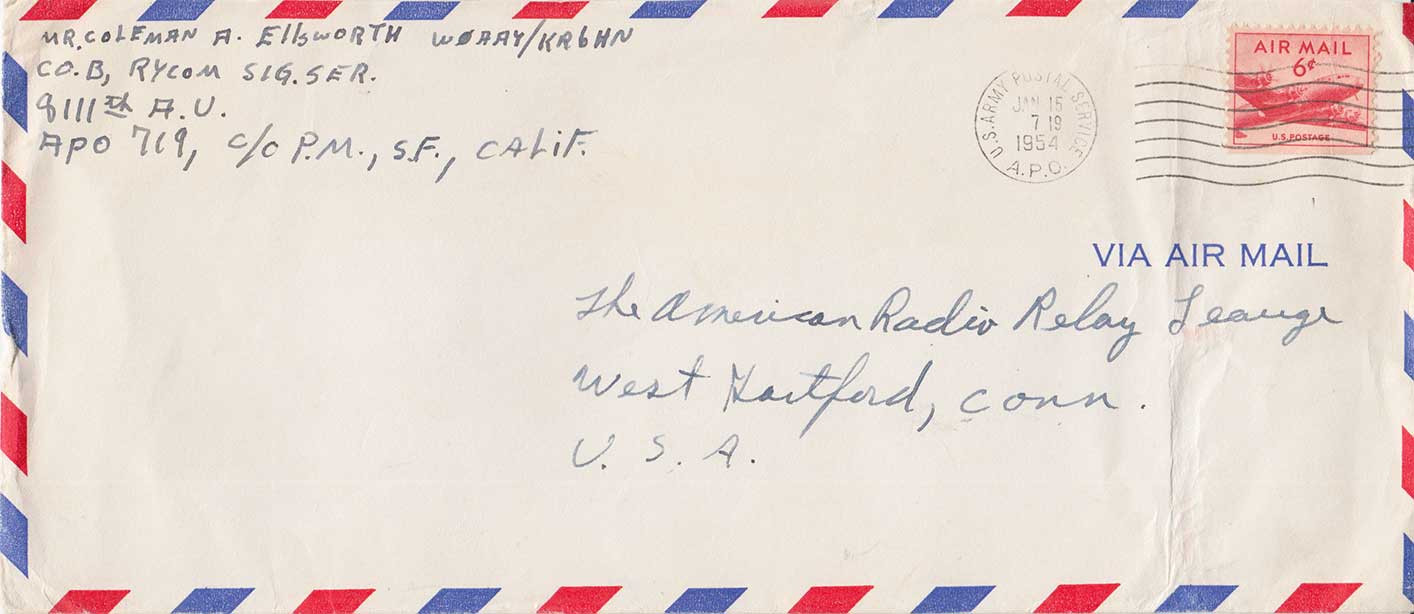 MR. COLEMAN A. EllSWORTH WØAAY/KR6HN
CO. B, RYCOM SIG. SER.
8111th A.U.
APO 719, c/o P.M., S.F., CALiF.
U.S. ARMY POSTAL SERVICE
JAN 15
7 19
1954
A.P.O.
AIR MAIL
6¢
U.S. POSTAGE
VIA AIR MAIL
The American Radio Relay Leauge
West Hartford, Conn.
U. S. A.